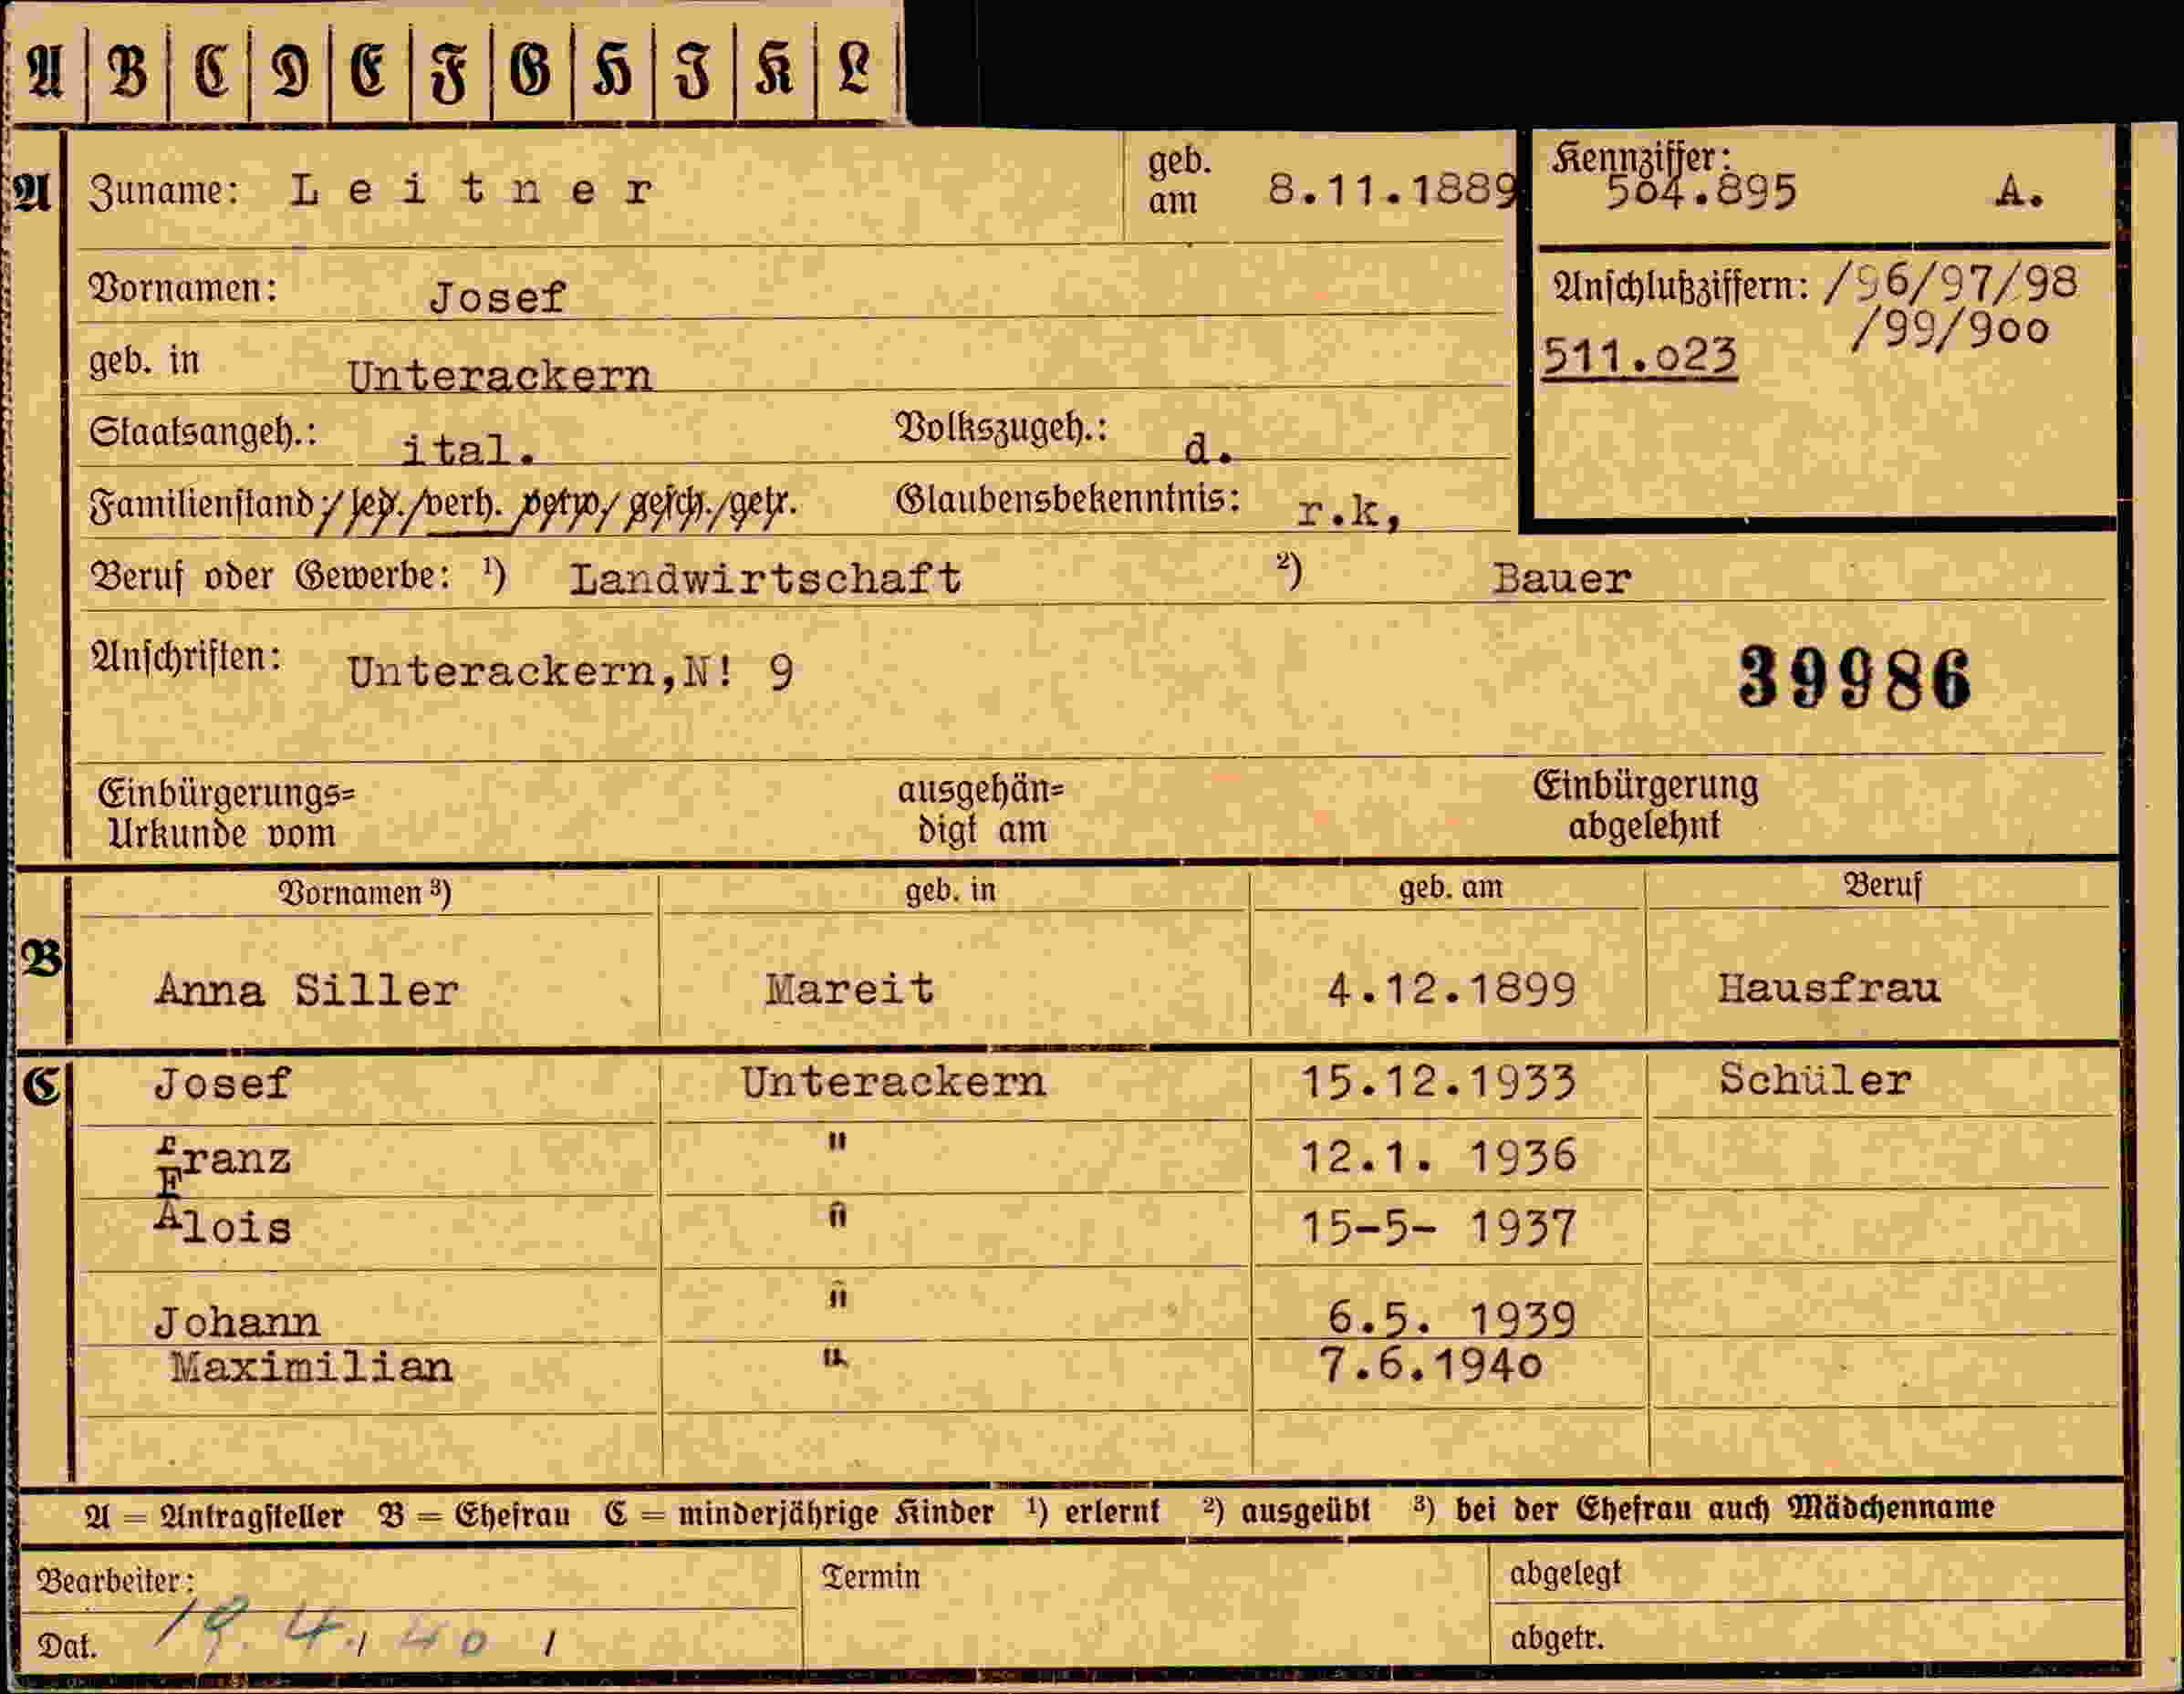 A B C D E F G H I K L
A Zuname: Leitner geb. am 8.11.1889
Kennziffer: 504.895 A.
Vornamen: Josef
Anschlußziffern: /96/97/98
/99/900
511.023
geb. in Unterackern
Staatsangeh.: ital. Volkszugeh.: d.
Familienstand: / led. / verh. verw. / gesch. / getr. Glaubensbekenntnis: r.k,
Beruf oder Gewerbe: ¹) Landwirtschaft ²) Bauer
Anschriften: Unterackern,N! 9
39986
Einbürgerungs= ausgehän= Einbürgerung
Urkunde vom digt am abgelehnt
Vornamen ³) geb. in geb. am Beruf
B Anna Siller Mareit 4.12.1899 Hausfrau
C Josef Unterackern 15.12.1933 Schüler
Franz " 12.1. 1936
Alois " 15-5- 1937
Johann " 6.5. 1939
Maximilian " 7.6.1940
A = Antragsteller B = Ehefrau C = minderjährige Kinder ¹) erlernt ²) ausgeübt ³) bei der Ehefrau auch Mädchenname
Bearbeiter: Termin abgelegt
Dat. 19.4.40 abgetr.